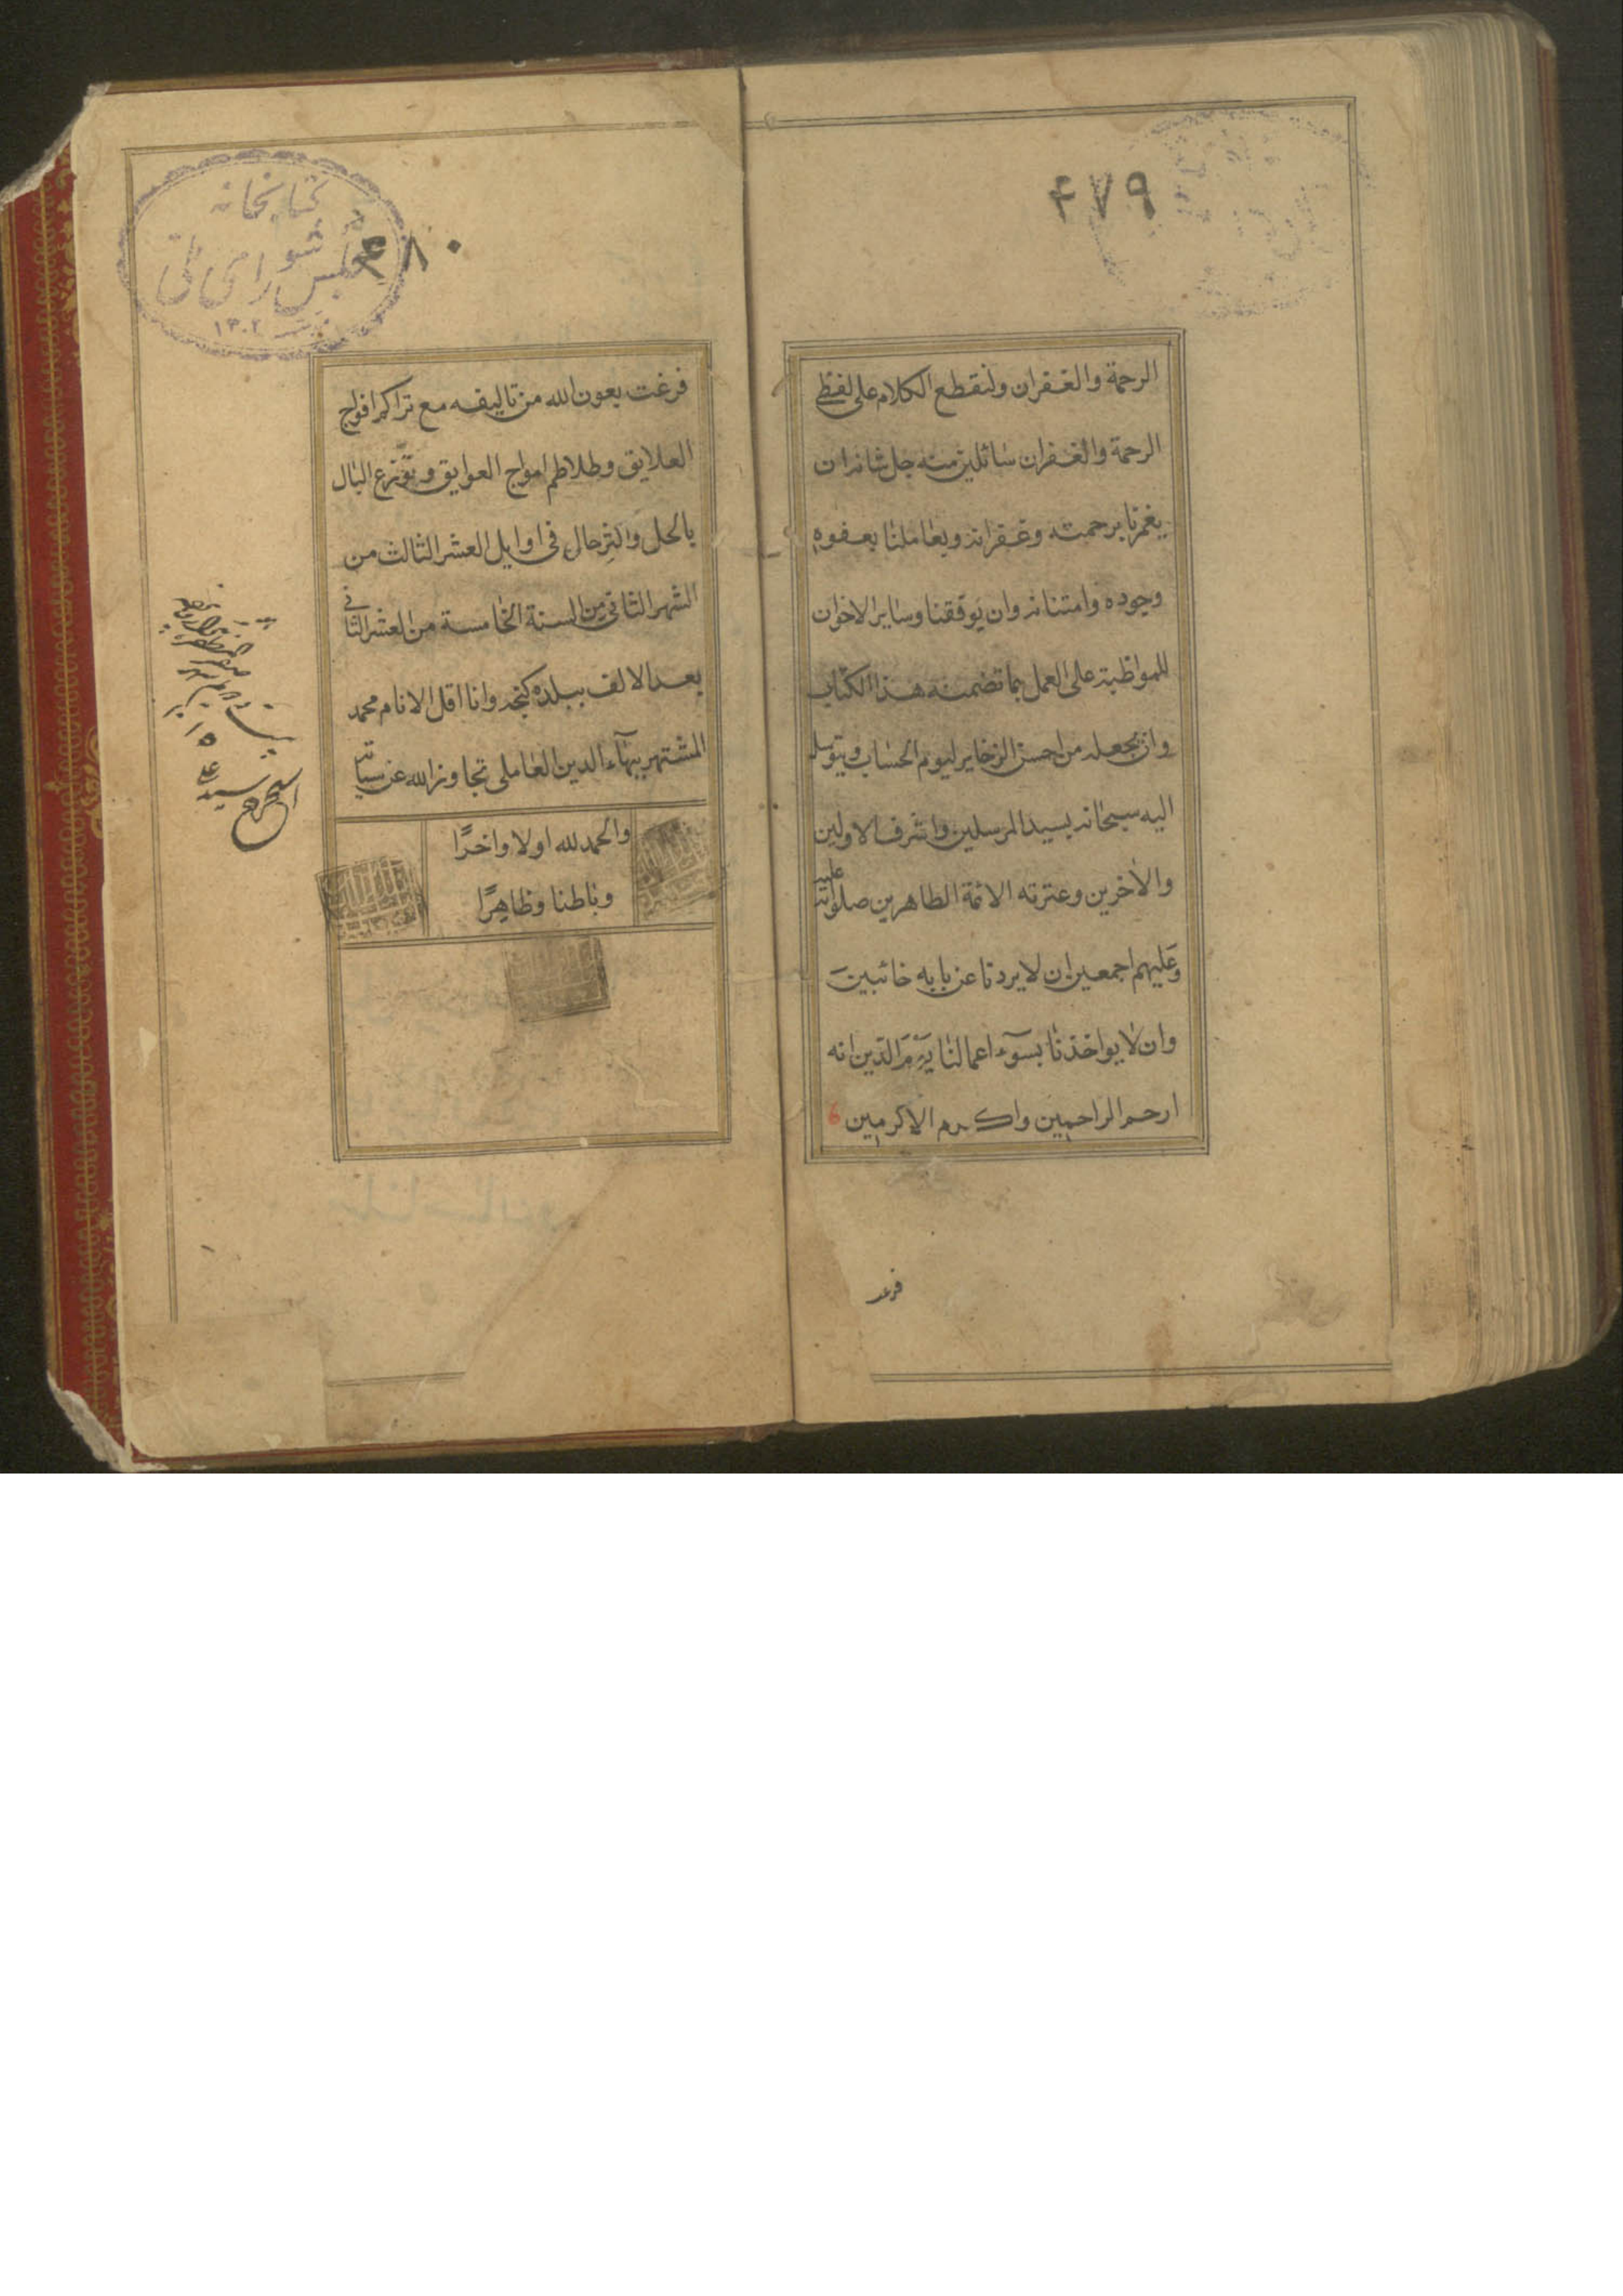 ۴۷۹
الرحمة والغفران ولنقطع الكلام على لفظي
الرحمة والغفران سائلين منه جل شانه ان
يغمرنا برحمته وغفرانه ويعاملنا بعفوه
وجوده وامتنانه وان يوفقنا وساير الاخوان
للمواظبة على العمل بما تضمنه هذا الكتاب
وان يجعله من احسن الذخاير ليوم الحساب ويتوسل
اليه سبحانه بسيد المرسلين واشرف الاولين
والاخرين وعترته الائمة الطاهرين صلواته عليه
وعليهم اجمعين ان لا يردنا عن بابه خائبين
وان لا يواخذنا بسوء اعمالنا يَوْمَ الدّين انه
ارحم الراحمين واكرم الاكرمين
فرغت
كتابخانه
مجلس شوراى ملّى
۱۳۰۲
۴۸۰
فرغت بعون الله من تاليفه مع تراكم افواج
العلايق وطلاطم امواج العوايق وتوزّع البال
بالحل والترحال فى اوايل العشر الثالث من
الشهر الثانى من السنة الخامسة من العشر الثانى
بعد الالف ببلده كنجه وانا اقل الانام محمد
المشتهر ببهآء الدين العاملى تجاوز الله عن سياته
والحمد لله اولا واخرًا
وباطنا وظاهرًا